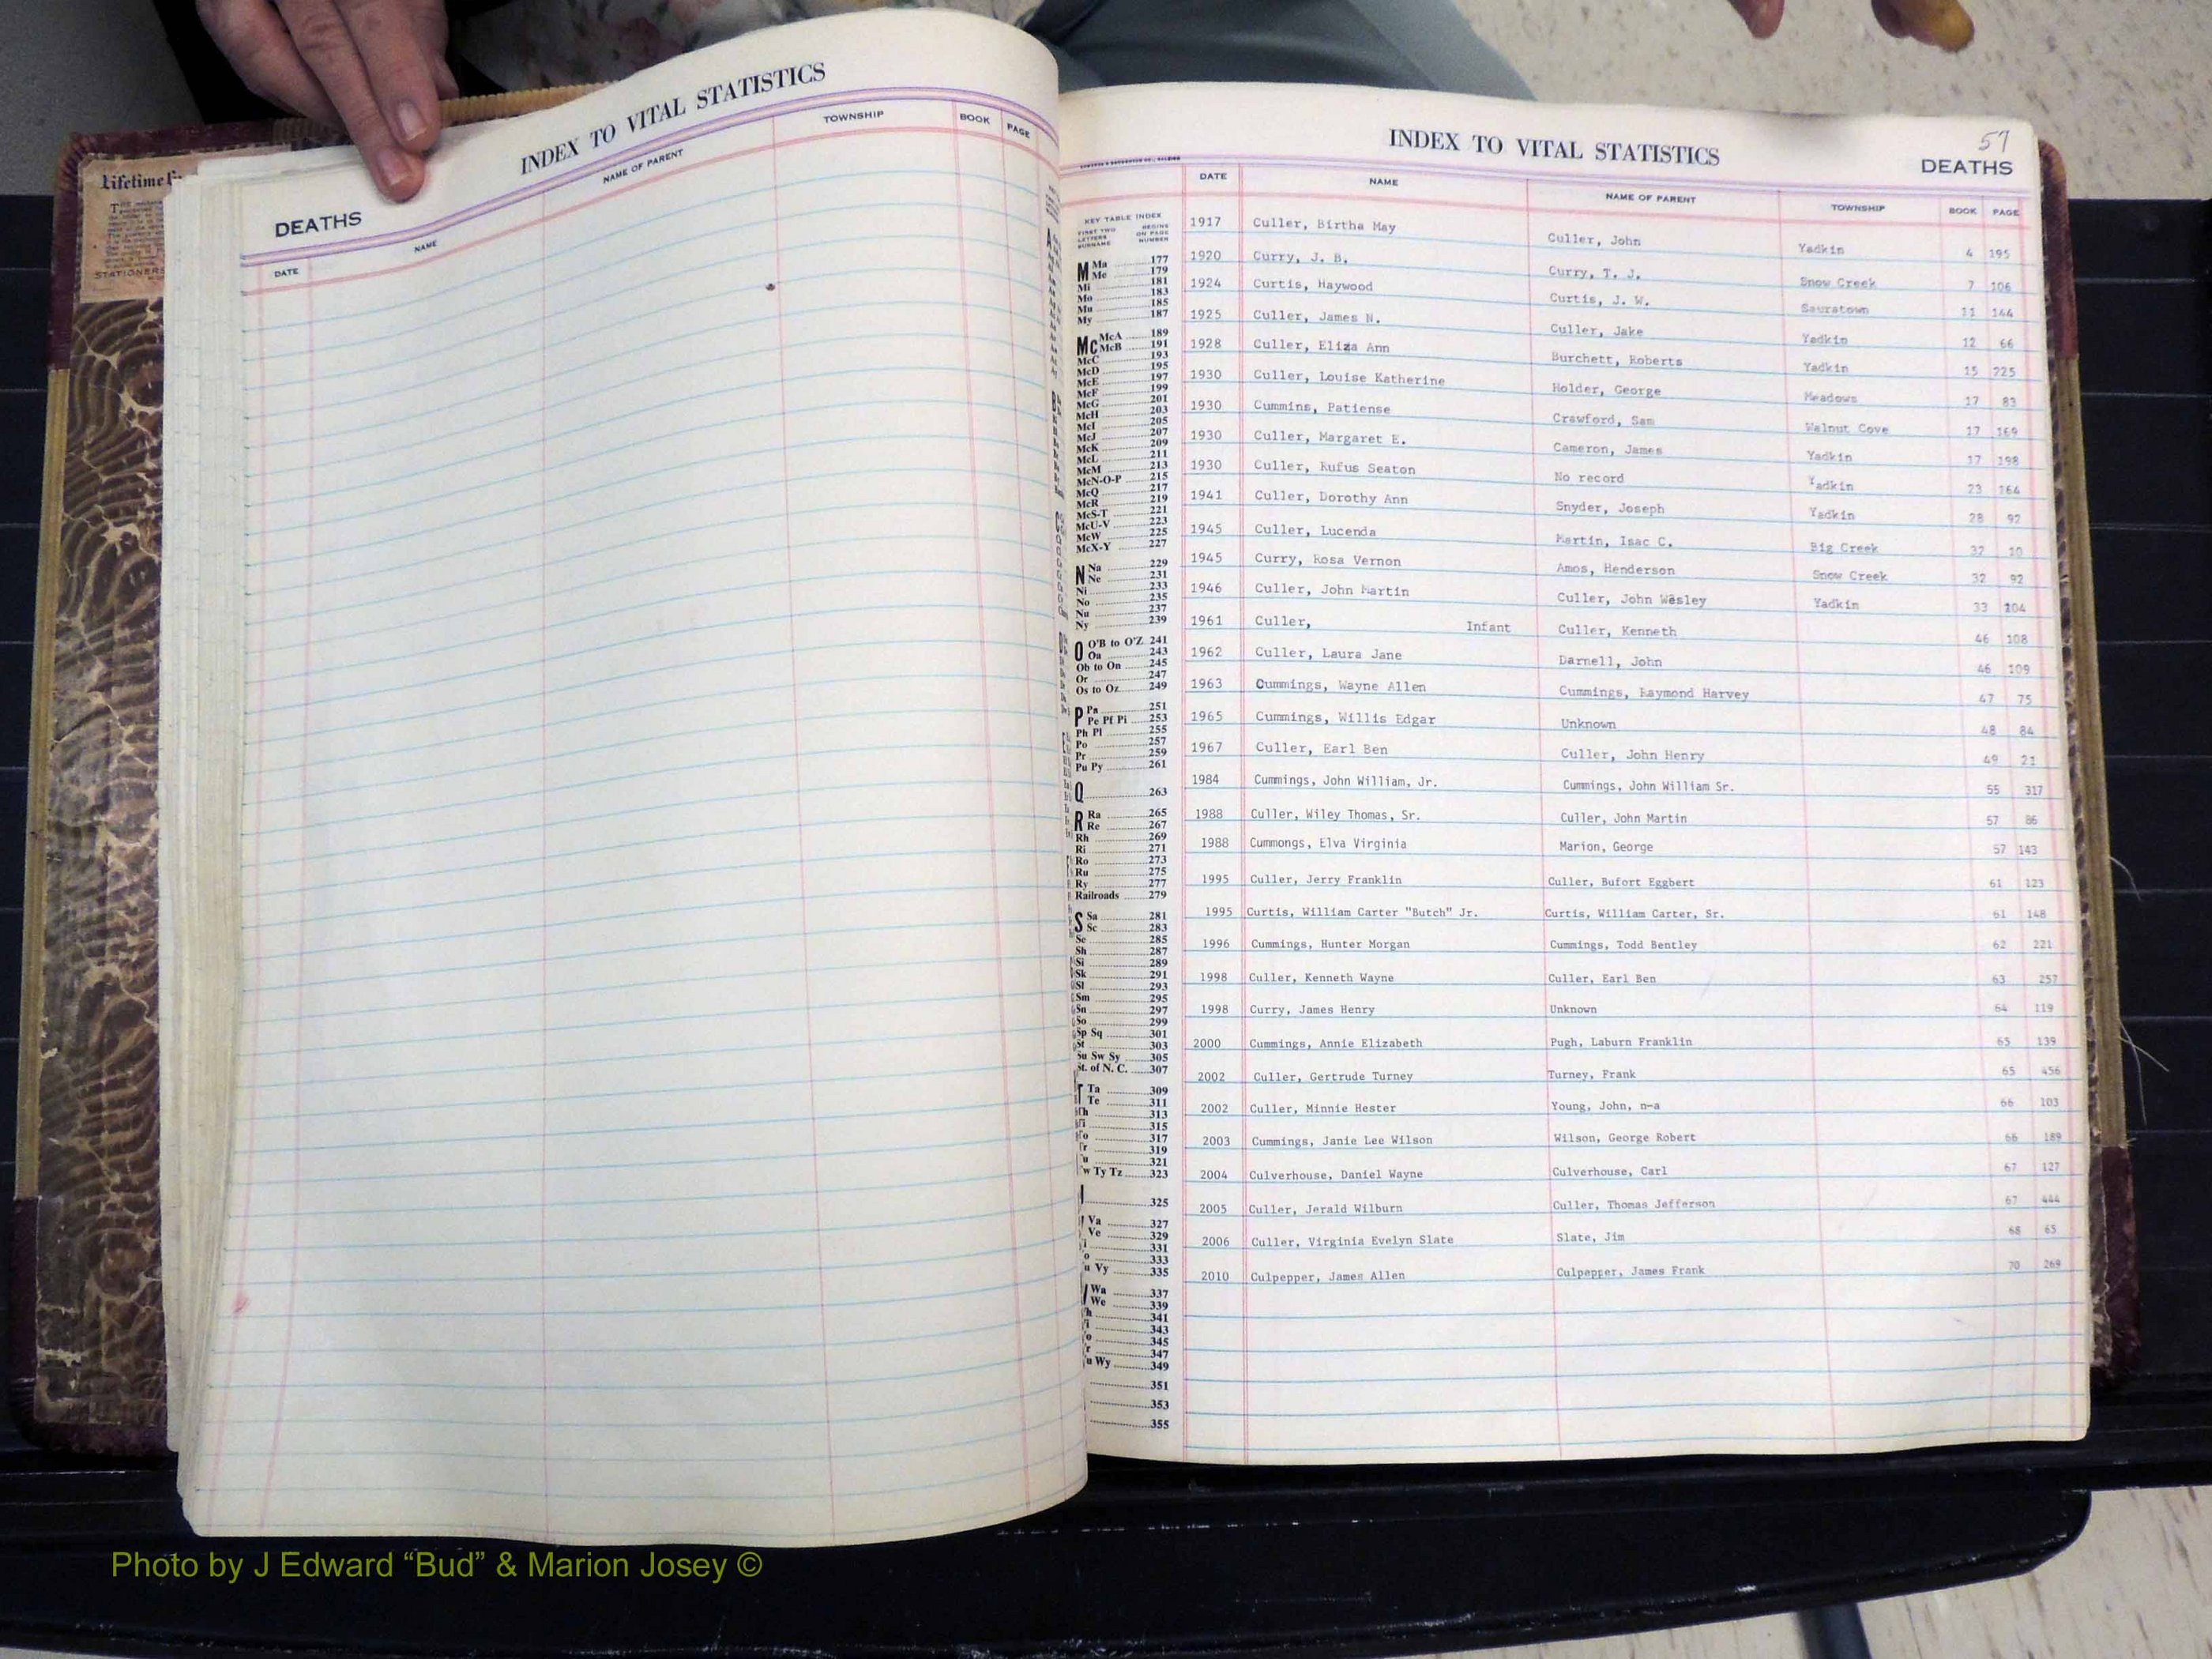 Lifetime
STATIONERS
INDEX TO VITAL STATISTICS
DEATHS
DATE NAME NAME OF PARENT TOWNSHIP BOOK PAGE
57
INDEX TO VITAL STATISTICS
DEATHS
DATE NAME NAME OF PARENT TOWNSHIP BOOK PAGE
1917 Culler, Birtha May Culler, John Yadkin 4 195
1920 Curry, J. B. Curry, T. J. Snow Creek 7 106
1924 Curtis, Haywood Curtis, J. W. Sauratown 11 144
1925 Culler, James N. Culler, Jake Yadkin 12 66
1928 Culler, Eliza Ann Burchett, Roberts Yadkin 15 225
1930 Culler, Louise Katherine Holder, George Meadows 17 83
1930 Cummins, Patiense Crawford, Sam Walnut Cove 17 169
1930 Culler, Margaret E. Cameron, James Yadkin 17 198
1930 Culler, Rufus Seaton No record Yadkin 23 164
1941 Culler, Dorothy Ann Snyder, Joseph Yadkin 28 92
1945 Culler, Lucenda Martin, Isac C. Big Creek 32 10
1945 Curry, Rosa Vernon Amos, Henderson Snow Creek 32 92
1946 Culler, John Martin Culler, John Wesley Yadkin 33 204
1961 Culler, Infant Culler, Kenneth 46 108
1962 Culler, Laura Jane Darnell, John 46 109
1963 Cummings, Wayne Allen Cummings, Raymond Harvey 47 75
1965 Cummings, Willis Edgar Unknown 48 84
1967 Culler, Earl Ben Culler, John Henry 49 21
1984 Cummings, John William, Jr. Cummings, John William Sr. 55 317
1988 Culler, Wiley Thomas, Sr. Culler, John Martin 57 86
1988 Cummongs, Elva Virginia Marion, George 57 143
1995 Culler, Jerry Franklin Culler, Bufort Eggbert 61 123
1995 Curtis, William Carter "Butch" Jr. Curtis, William Carter, Sr. 61 148
1996 Cummings, Hunter Morgan Cummings, Todd Bentley 62 221
1998 Culler, Kenneth Wayne Culler, Earl Ben 63 257
1998 Curry, James Henry Unknown 64 119
2000 Cummings, Annie Elizabeth Pugh, Laburn Franklin 65 139
2002 Culler, Gertrude Turney Turney, Frank 65 456
2002 Culler, Minnie Hester Young, John, n-a 66 103
2003 Cummings, Janie Lee Wilson Wilson, George Robert 66 189
2004 Culverhouse, Daniel Wayne Culverhouse, Carl 67 127
2005 Culler, Jerald Wilburn Culler, Thomas Jefferson 67 444
2006 Culler, Virginia Evelyn Slate Slate, Jim 68 65
2010 Culpepper, James Allen Culpepper, James Frank 70 269
KEY TABLE INDEX
FIRST TWO LETTERS SURNAME BEGINS ON PAGE NUMBER
M Ma 177
Me 179
Mi 181
Mo 183
Mu 185
My 187
Mc McA 189
McB 191
McC 193
McD 195
McE 197
McF 199
McG 201
McH 203
McI 205
McJ 207
McK 209
McL 211
McM 213
McN-O-P 215
McQ 217
McR 219
McS-T 221
McU-V 223
McW 225
McX-Y 227
N Na 229
Ne 231
Ni 233
No 235
Nu 237
Ny 239
O O'B to O'Z 241
Oa 243
Ob to On 245
Or 247
Os to Oz 249
P Pa 251
Pe Pf Pi 253
Ph Pl 255
Po 257
Pr 259
Pu Py 261
Q 263
R Ra 265
Re 267
Rh 269
Ri 271
Ro 273
Ru 275
Ry 277
Railroads 279
S Sa 281
Sc 283
Se 285
Sh 287
Si 289
Sk 291
Sl 293
Sm 295
Sn 297
So 299
Sp Sq 301
St 303
Su Sw Sy 305
St. of N. C. 307
T Ta 309
Te 311
Th 313
315
To 317
Tr 319
321
w Ty Tz 323
325
Va 327
Ve 329
331
333
u Vy 335
Wa 337
We 339
341
343
345
347
u Wy 349
351
353
355
Photo by J Edward “Bud” & Marion Josey ©